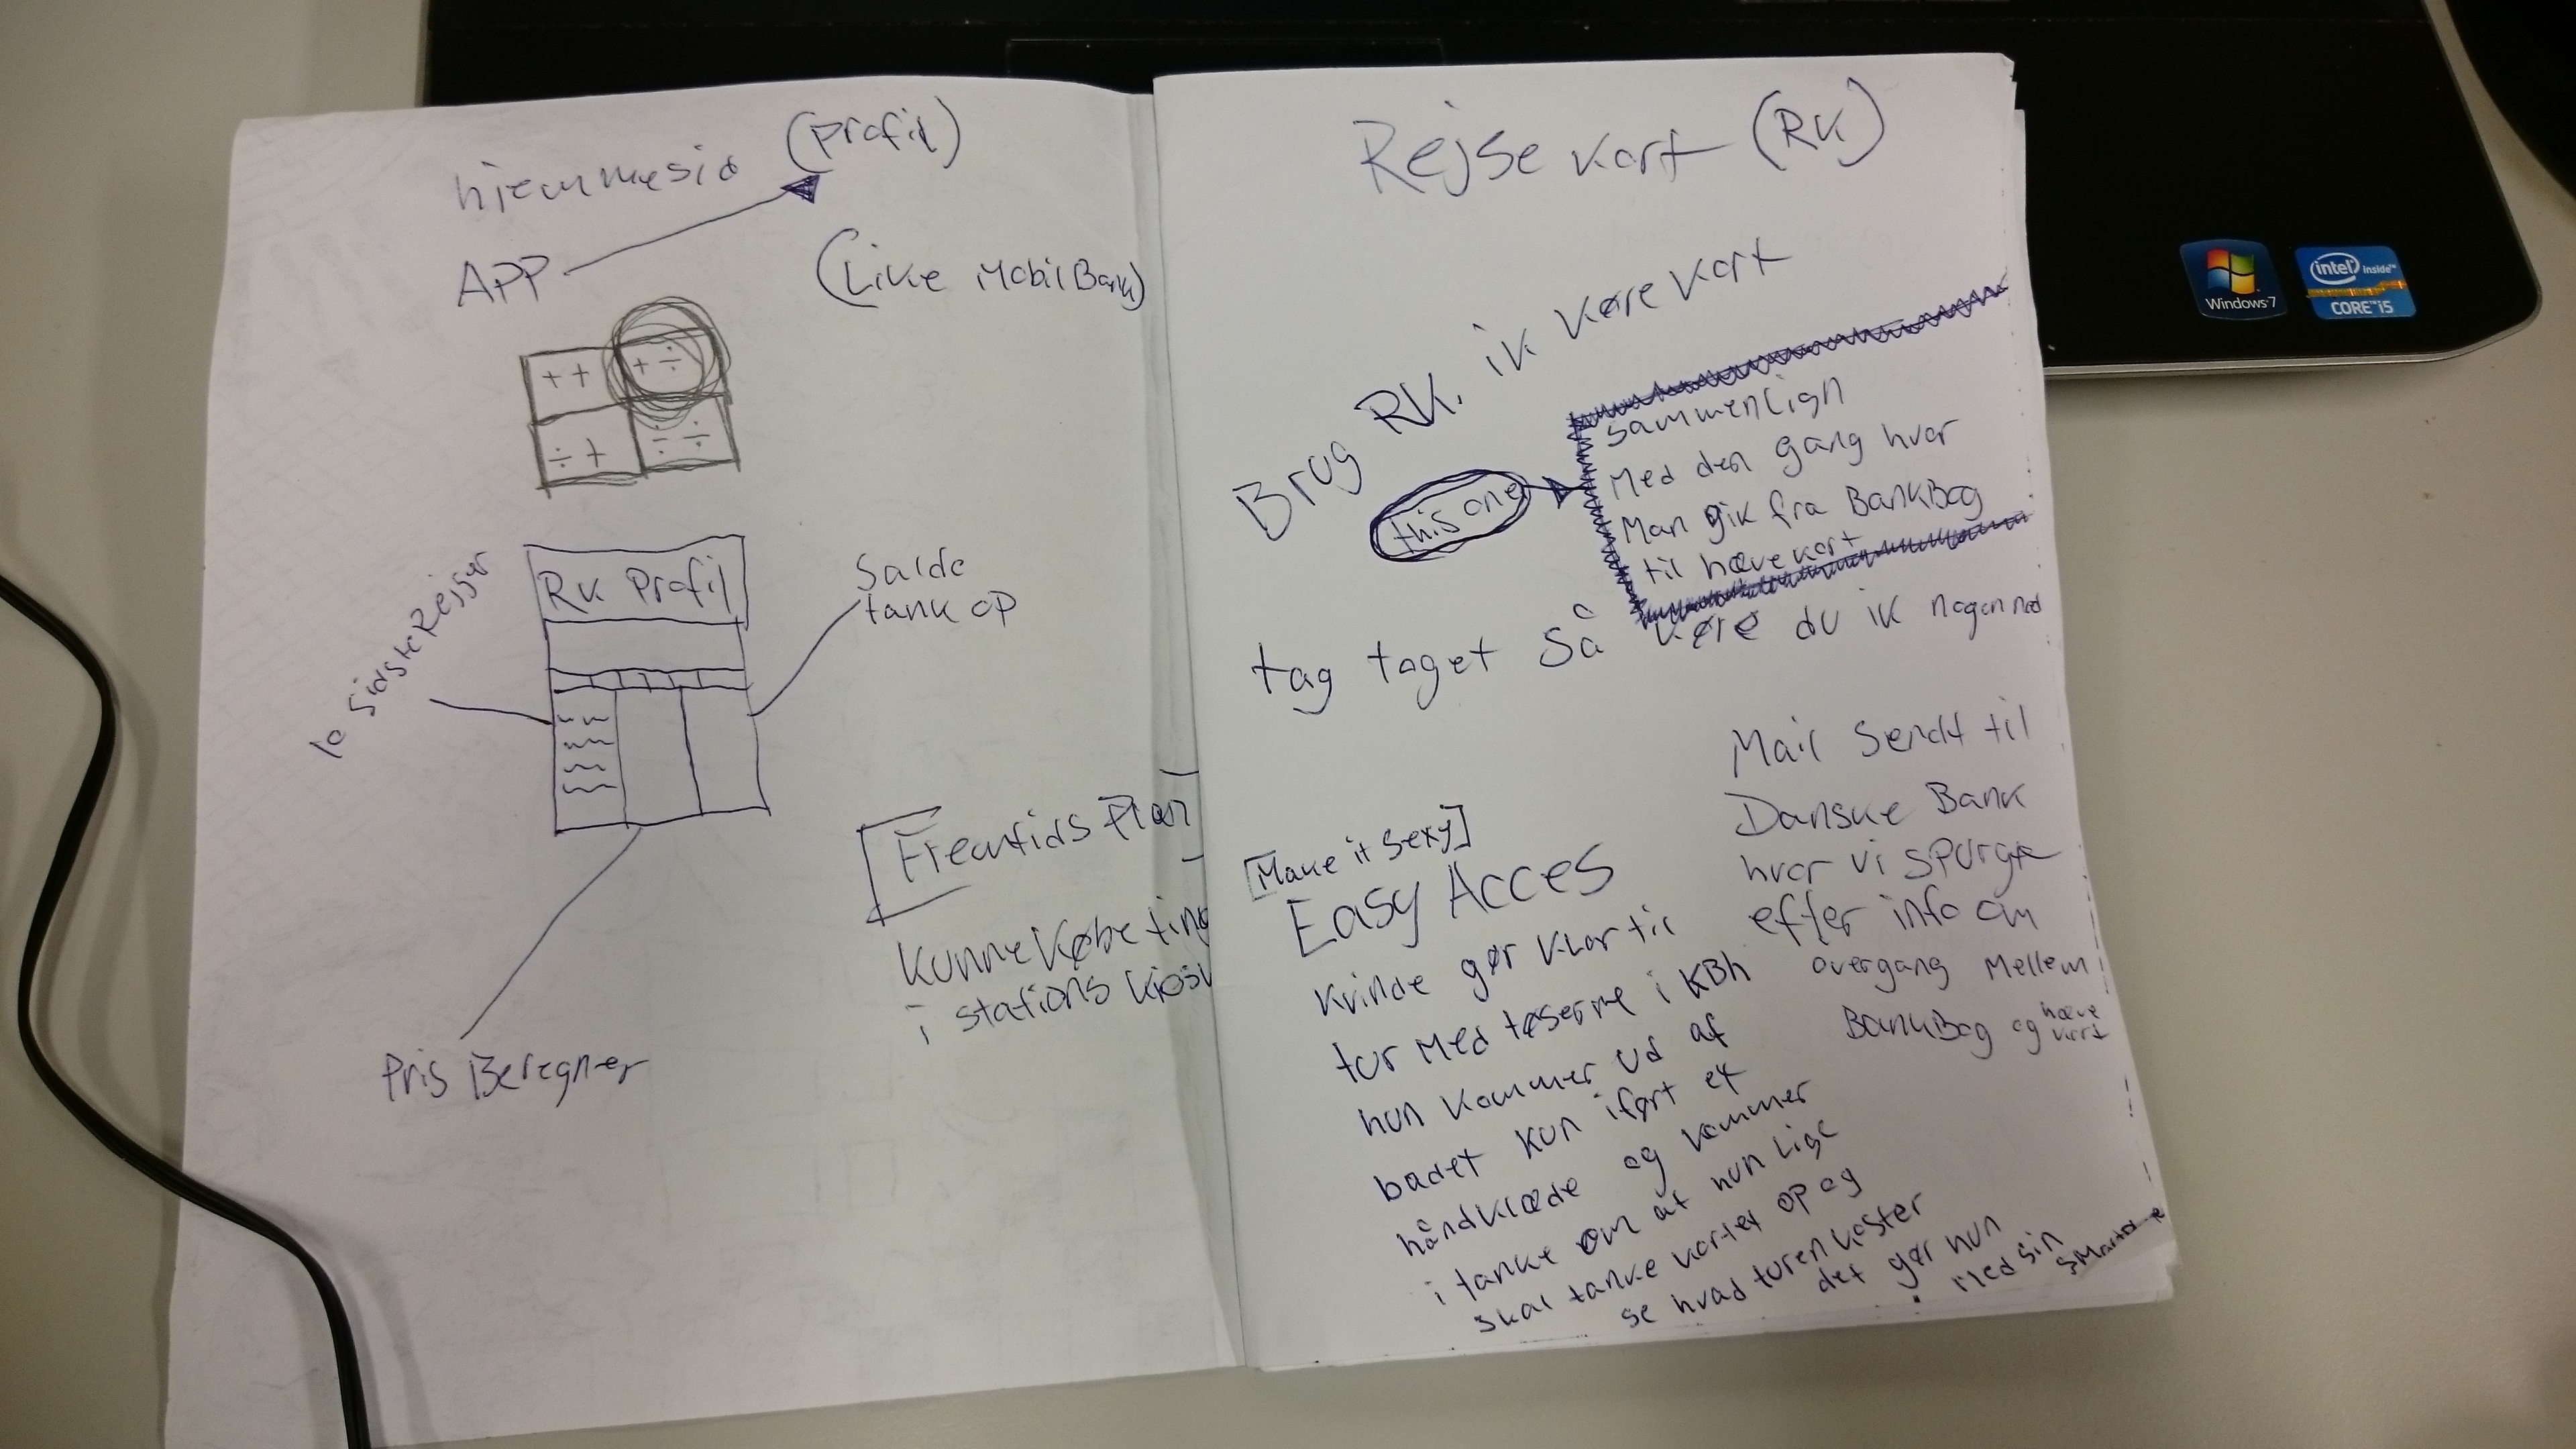 hjemmesid (Profil)
APP
(Like MobilBank)
+ + + ÷
÷ + ÷ ÷
Rk Profil
10 sidste Rejser
Saldo
tank op
Pris Beregner
[Fremtids Plan
Kunne Købe ting
i stations kiosk
Rejse kort (RK)
Brug RK. ik køre kort
this one
sammenlign
Med den gang hvor
Man gik fra BankBog
til hævekort
tag toget så køre du ik nogen ned
Mail sendt til
Danske Bank
hvor vi spurgte
efter info om
overgang Mellem
BankBog og hæve
kort
[Make it sexy]
Easy Acces
Kvinde gør klar til
tur Med tøserne i KBh
hun kommer ud af
badet kun iført et
håndklæde og kommer
i tanke om at hun lige
skal tanke kortet op og
se hvad turen koster
det gør hun
Med sin
Windows 7
intel inside™
CORE™ i5